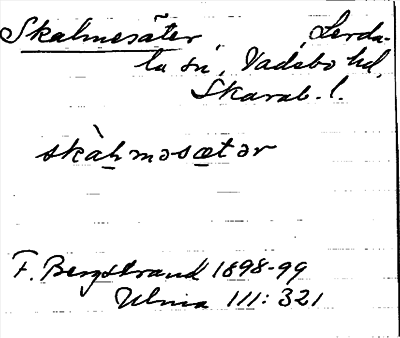 Skalmesäter, Lerda-
la sn, Vadsbo hd,
Skarab. l.
skàhməsætər
F. Bergstrand 1898-99
Ulma 111: 321